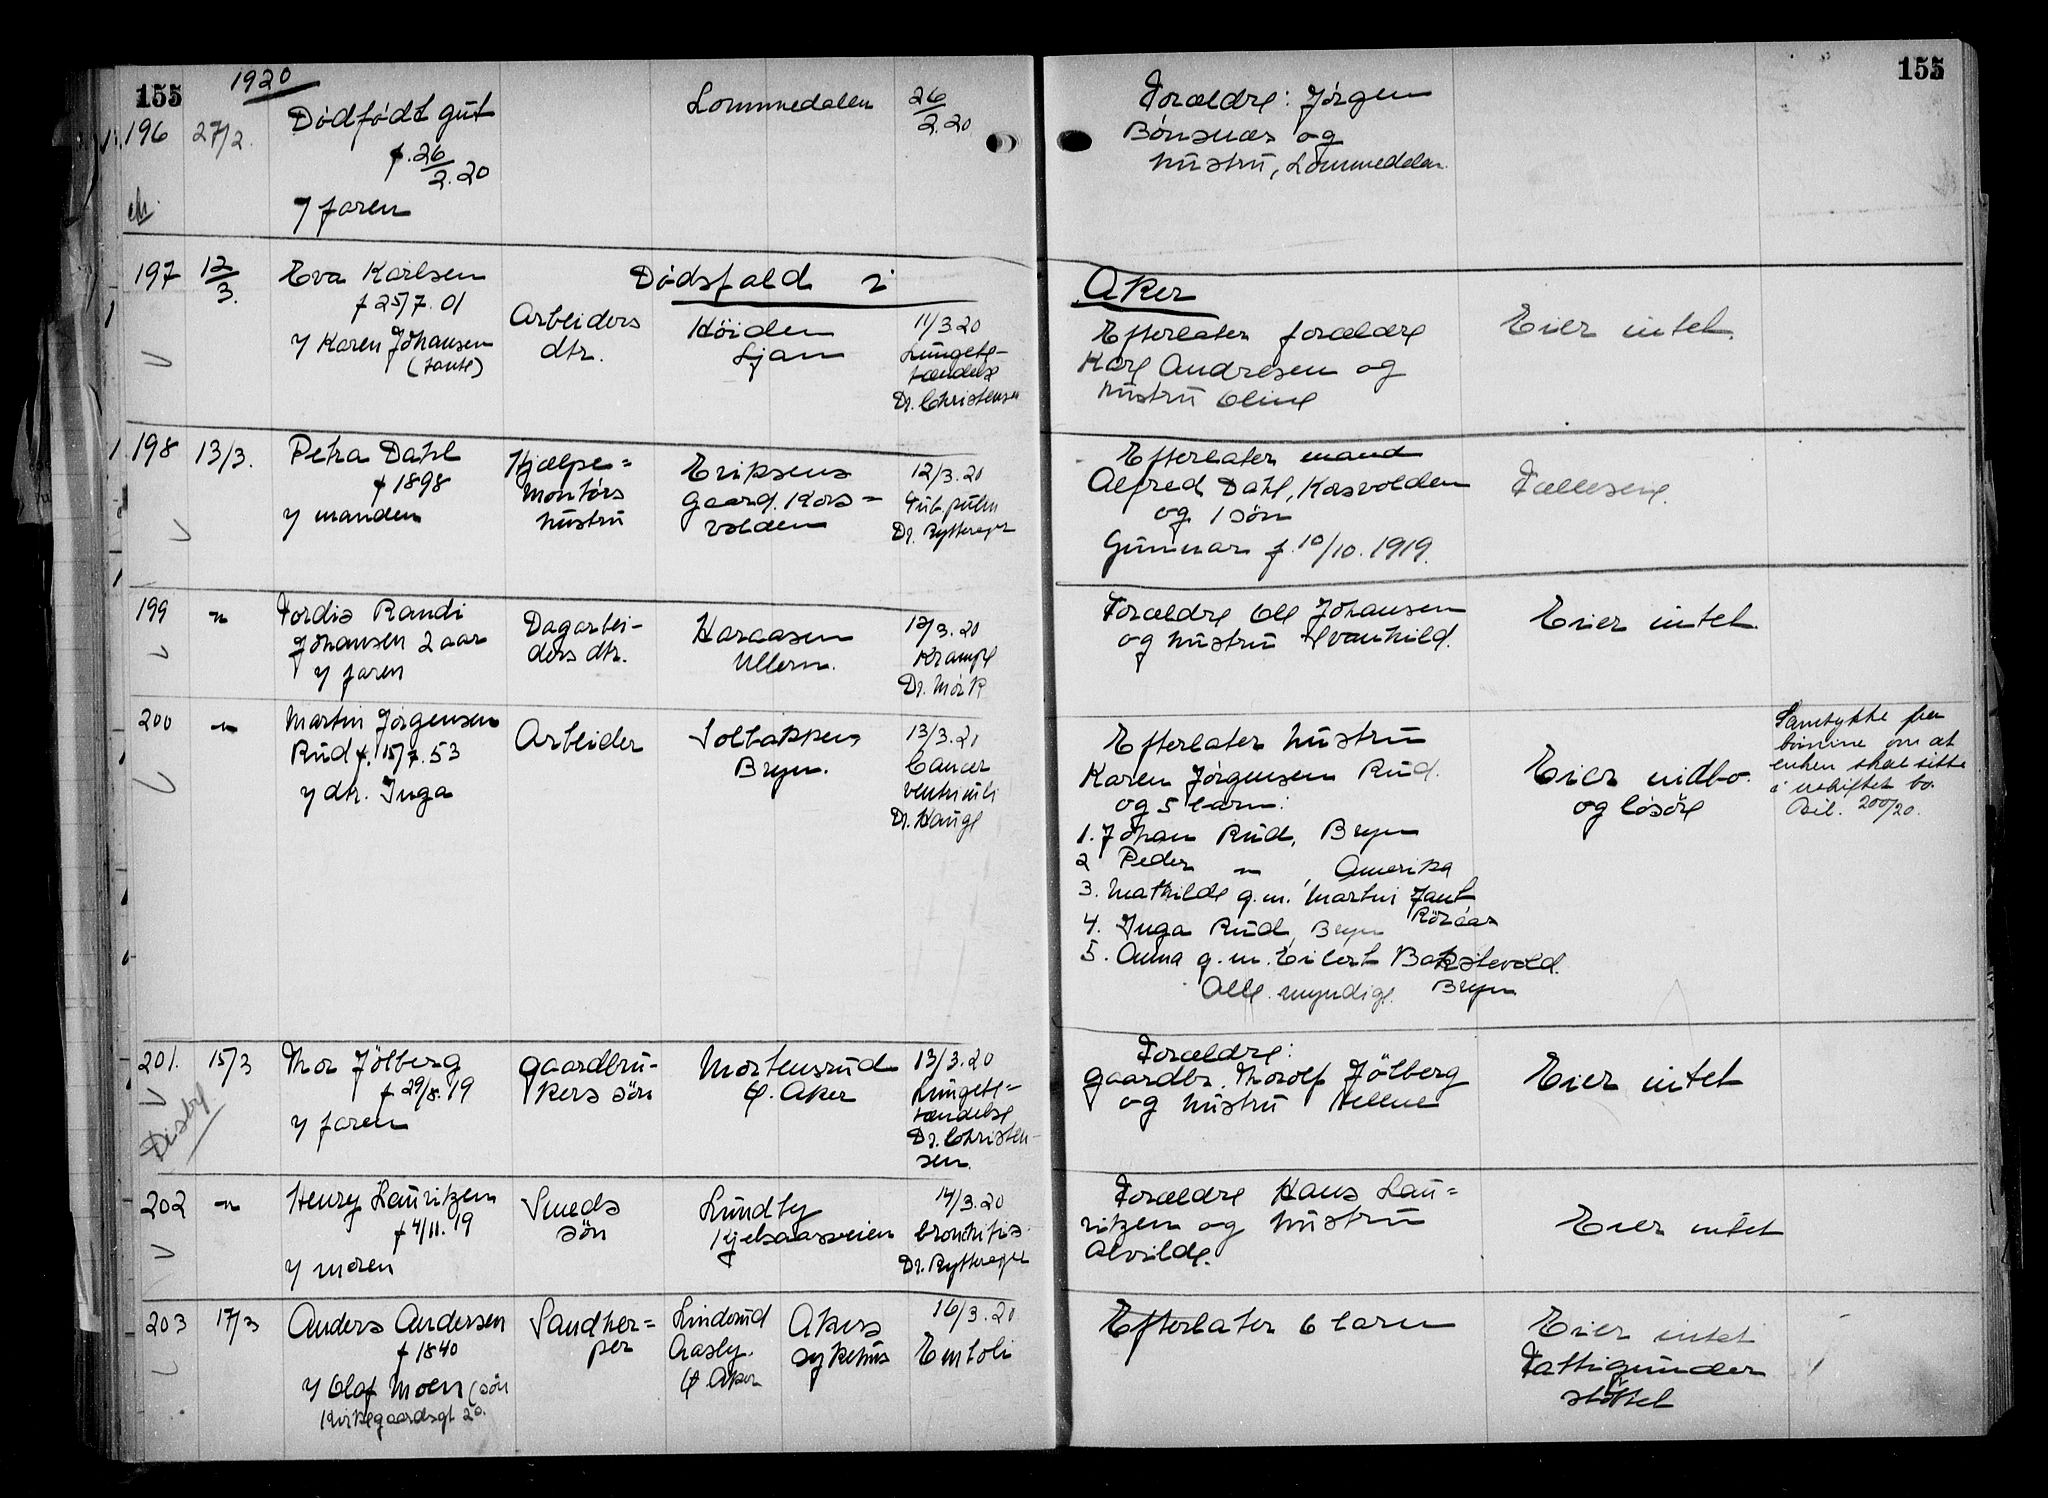 155
1920
155
196 27/2. Dødfødt gut
f. 26/2.20
y faren
Lommedalen
26/2.20
Forældre: Jørgen
Bönsnæs og
hustru, Lommedalen.
197 12/3. Eva Karlsen
f 25/7.01
y Karen Johansen
(tante)
Dødsfald i
Aker
Arbeiders
dtr.
Höiden
Ljan
11/3 20
Lungebe-
tændelse
Dr. Christensen
Efterlater forældre
Karl Andresen og
hustru Oline
Eier intet.
198 13/3. Petra Dahl
f 1898
y manden
Hjælpe=
montörs
hustru
Eriksens
gaard. Kors=
volden
12/3.20
Tub. pulm
Dr. Rytterager
Efterlater mand
Alfred Dahl, Korsvolden
og 1 sön
Gunnar f. 10/10.1919.
Fælleseie.
199 " Tordis Randi
Johansen 2 aar
y faren
Dagarbei-
ders dtr.
Haraasen
Ullern.
12/3.20
Krampe
Dr. Mörk
Forældre Ole Johansen
og hustru Svanhild.
Eier intet.
200 " Martin Jörgensen
Rud f. 15/7.53
y dtr. Inga
Arbeider
Solbakken
Bryn.
13/3.20
Cancer
ventriculi
Dr. Hauge
Efterlater hustru
Karen Jörgensen Rud.
og 5 barn:
1. Johan Rud, Bryn
2 Peder " , Amerika
3. Mathilde g.m. Martin
Röraas
4. Inga Rud, Bryn
5. Anna g.m. Eilert
Bryn
Alle myndige.
Eier indbo
og lösöre
Samtykke fra
barnene om at
enken skal sitte
i uskiftet bo.
Bil. 200/20.
201. 15/3 Thor Jölberg
f 29/8.19
y faren
Disby.
gaardbru-
kers sön
Mortensrud
Ö. Aker
13/3.20
Lungebe=
tændelse
Dr. Christen-
sen.
Forældre:
gaardbr. Thorolf Jölberg
og hustru Hellne
Eier intet
202 " Henry Lauritzen
f 4/11.19
y moren
Smeds
sön
Lundby
Kjelsaasveien
14/3.20
bronchitis
Dr. Rytterager
Forældre Hans Lau=
ritzen og hustru
Alvilde.
Eier intet
203 17/3 Anders Andersen
f 1840
y Olaf Moen (sön
Kirkegaardsgt 20.
Sandker=
per
Linderud
Aasby.
Ö Aker
Akers
sykehus
16/3.20
Emboli
Efterlater 6 barn
Eier intet
Fattigunder
stöttet